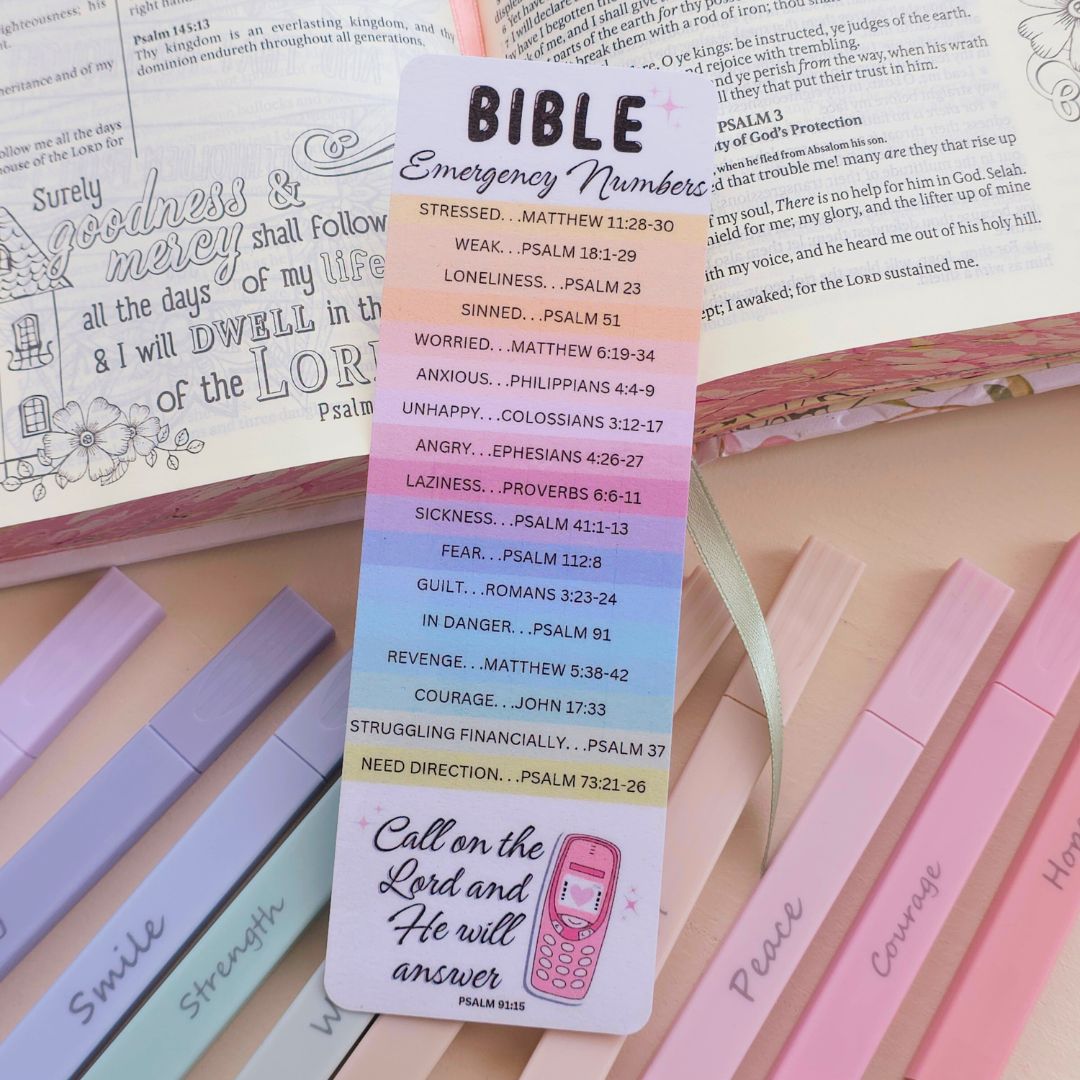 righteousness; his
heritance and of my
follow me all the days
house of the LORD for
right hand
Psalm 145:13
Thy kingdom is an everlasting kingdom, and thy
dominion endureth throughout all generations.
Surely
goodness &
mercy shall follow
all the days of my life
& I will DWELL in th
of the LOR
Psalm
7 I will declare
have I begotten
of me, and I shall give
parts of the earth for thy
break them with a rod of iron; thou
O ye kings: be instructed, ye judges of the earth.
and rejoice with trembling.
nd ye perish from the way, when his wrath
ll they that put their trust in him.
PSALM 3
ty of God's Protection
when he fled from Absalom his son.
d that trouble me! many are they that rise up
f my soul, There is no help for him in God. Selah.
hield for me; my glory, and the lifter up of mine
ith my voice, and he heard me out of his holy hill.
ept; I awaked; for the LORD sustained me.
BIBLE
Emergency Numbers
STRESSED. . .MATTHEW 11:28-30
WEAK. . .PSALM 18:1-29
LONELINESS. . .PSALM 23
SINNED. . .PSALM 51
WORRIED. . .MATTHEW 6:19-34
ANXIOUS. . .PHILIPPIANS 4:4-9
UNHAPPY. . .COLOSSIANS 3:12-17
ANGRY. . .EPHESIANS 4:26-27
LAZINESS. . .PROVERBS 6:6-11
SICKNESS. . .PSALM 41:1-13
FEAR. . .PSALM 112:8
GUILT. . .ROMANS 3:23-24
IN DANGER. . .PSALM 91
REVENGE. . .MATTHEW 5:38-42
COURAGE. . .JOHN 17:33
STRUGGLING FINANCIALLY. . .PSALM 37
NEED DIRECTION. . .PSALM 73:21-26
Call on the
Lord and
He will
answer
PSALM 91:15
Smile
Strength
W
Peace
Courage
Hon